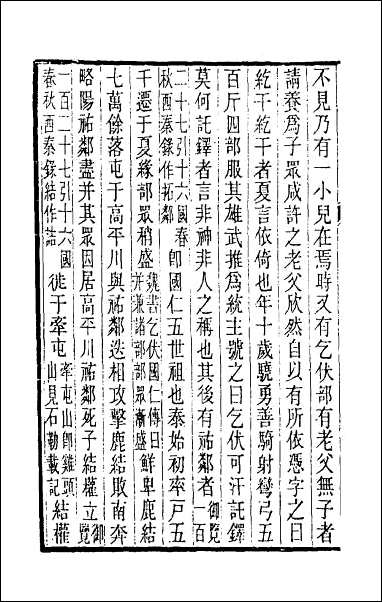 不見乃有一小兒在焉時又有乞伏部有老父無子者
請養爲子眾咸許之老父欣然自以有所依憑字之曰
紇干紇干者夏言依倚也年十歲驍勇善騎射彎弓五
百斤四部服其雄武推爲統主號之曰乞伏可汗託鐸
莫何託鐸者言非神非人之稱也其後有祐鄰者御覽一百
二十七引十六國春秋西秦錄作拓鄰卽國仁五世祖也泰始初率戶五
千遷于夏緣部眾稍盛魏書乞伏國仁傳曰并兼諸部部眾漸盛鮮卑鹿結
七萬餘落屯于高平川與祐鄰迭相攻擊鹿結敗南奔
略陽祐鄰盡并其眾因居高平川祐鄰死子結權立御覽
一百二十七引十六國春秋西秦錄結作詰徙于牽屯牽屯山卽雞頭山見石勒載記結權